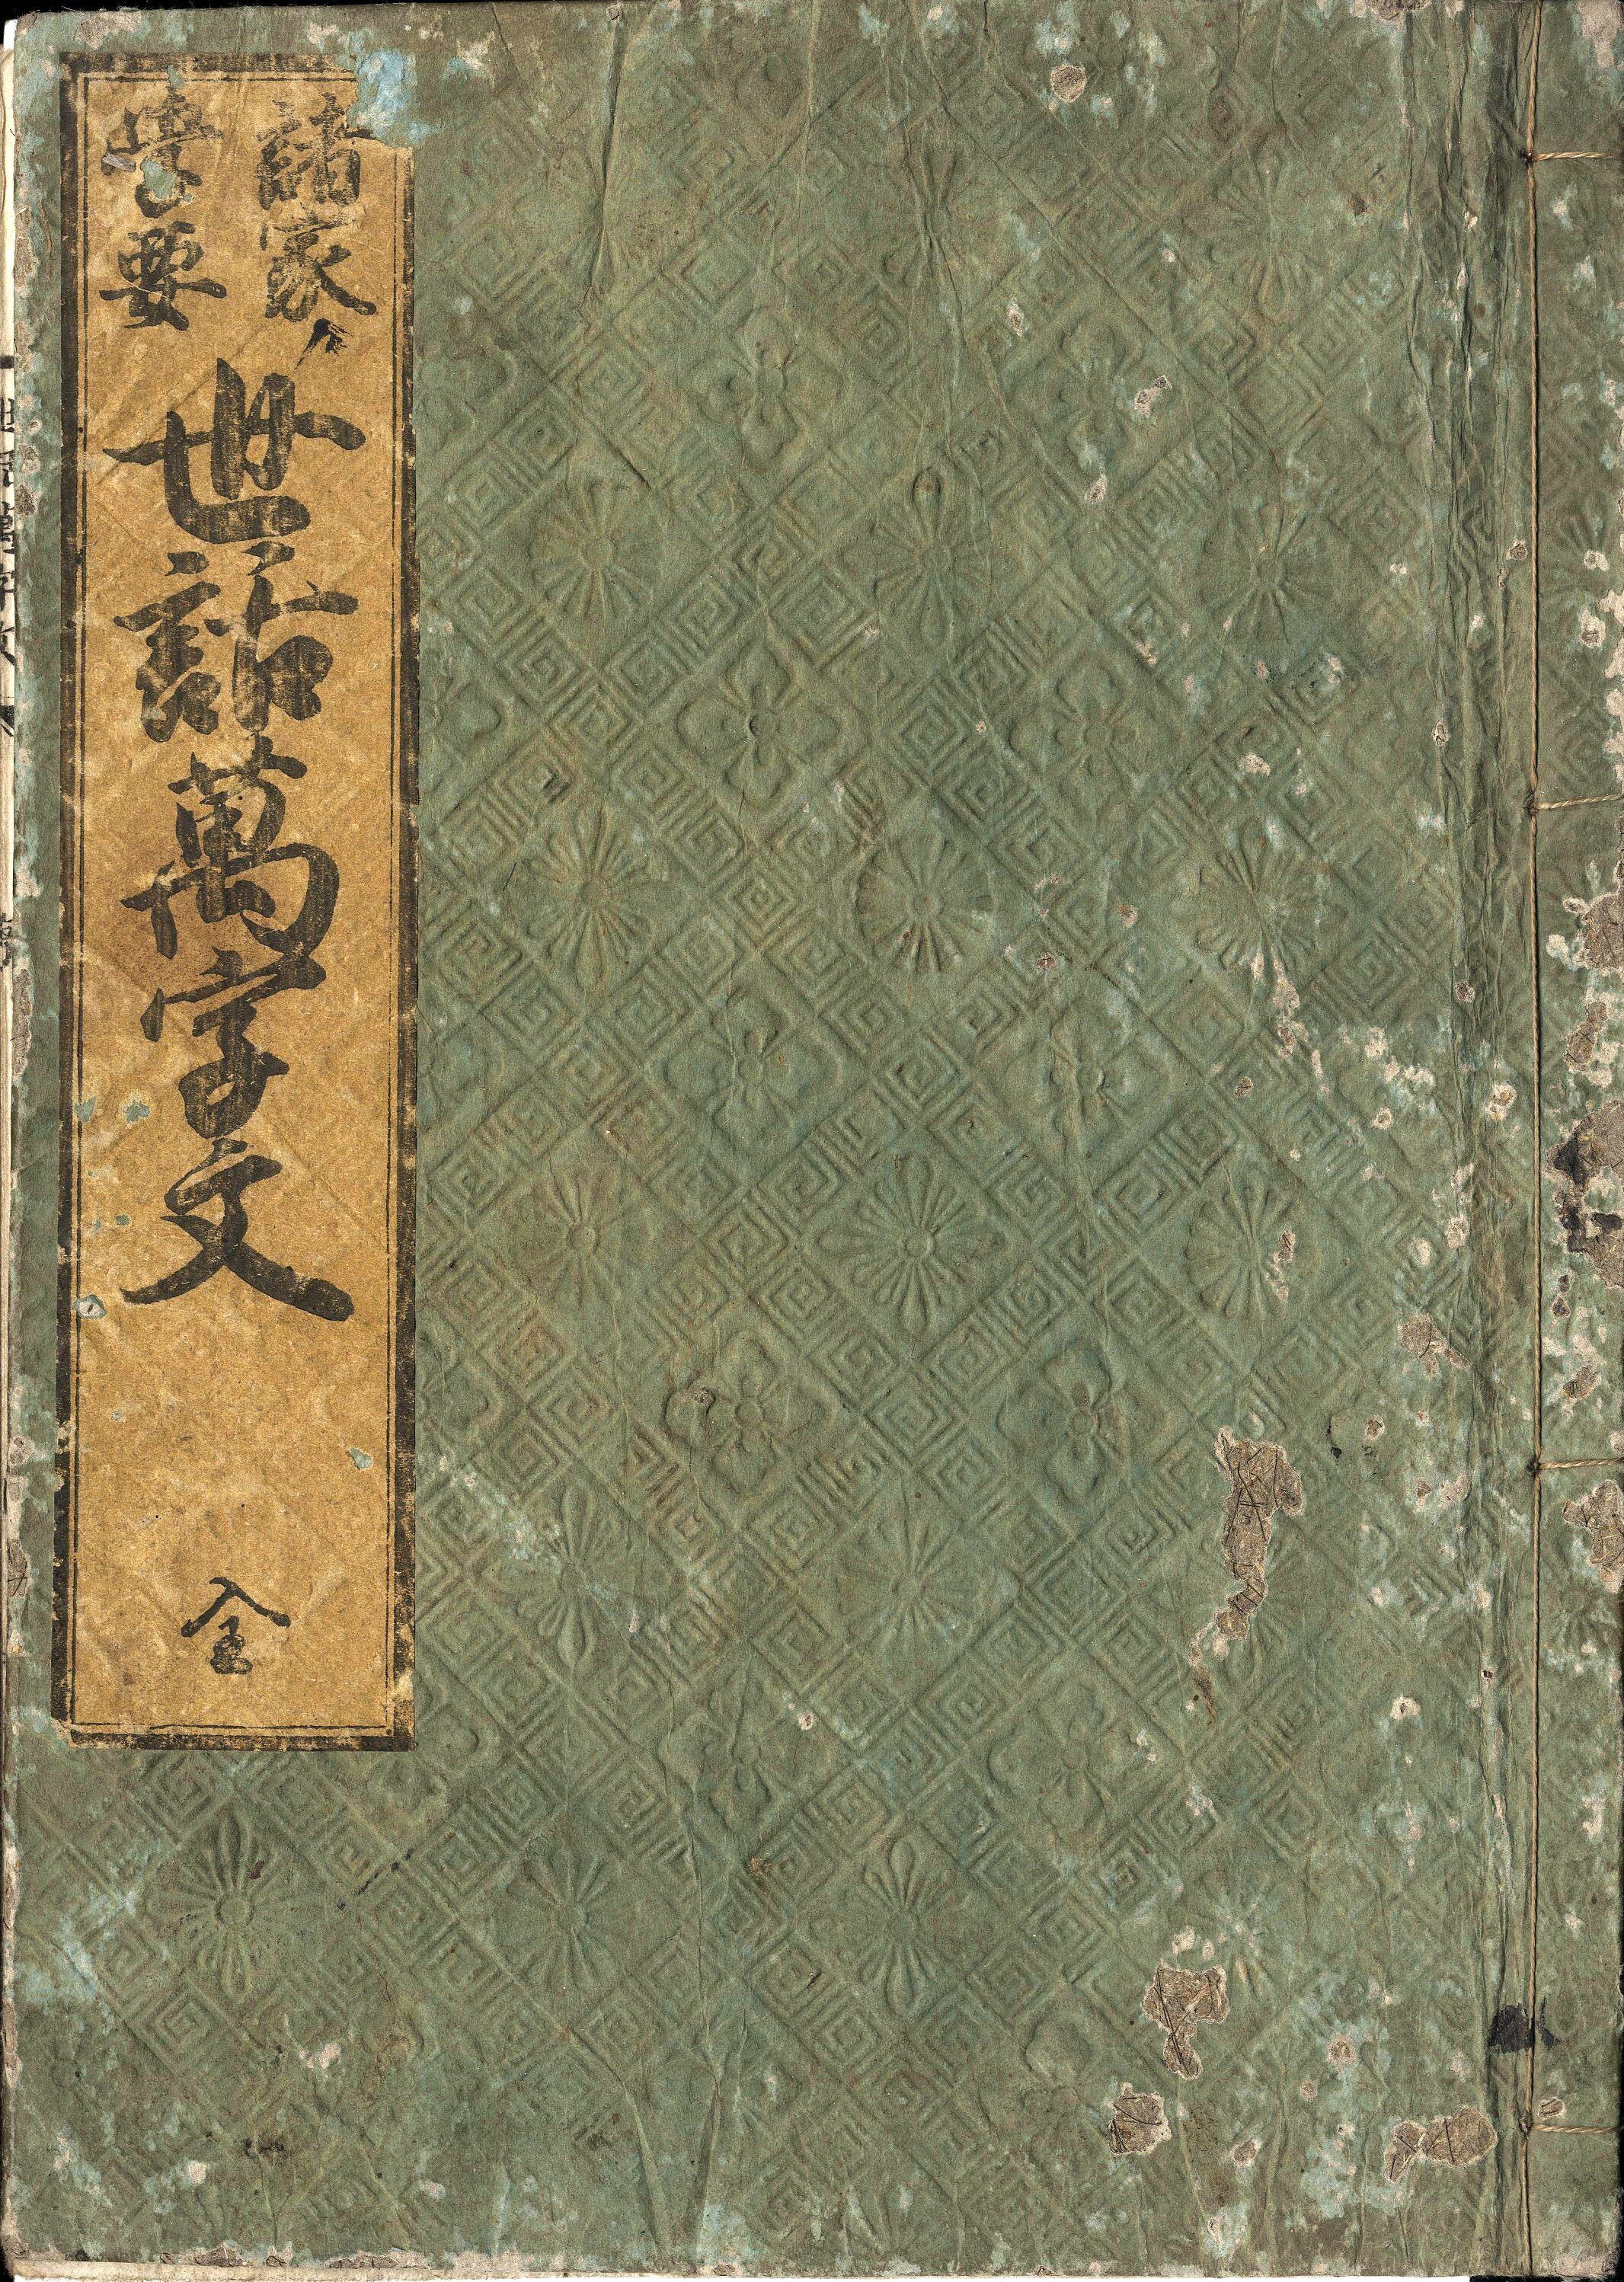 諸家
学要
世話萬字文
全